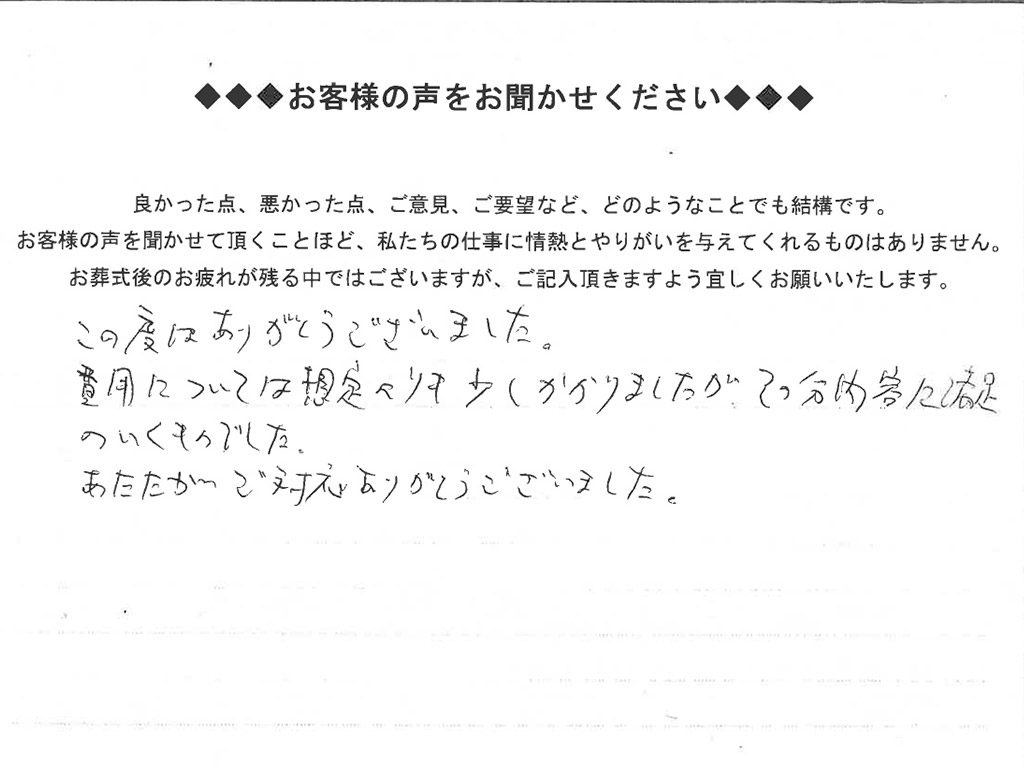 ◆◆◆お客様の声をお聞かせください◆◆◆
良かった点、悪かった点、ご意見、ご要望など、どのようなことでも結構です。
お客様の声を聞かせて頂くことほど、私たちの仕事に情熱とやりがいを与えてくれるものはありません。
お葬式後のお疲れが残る中ではございますが、ご記入頂きますよう宜しくお願いいたします。
この度はありがとうございました。
費用については想定よりも少しかかりましたが、その分内容に満足
のいくものでした。
あたたかいご対応ありがとうございました。